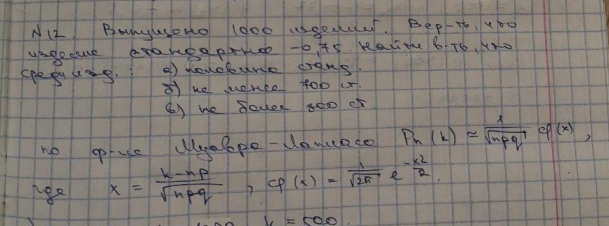 N12. Выпущено 1000 изделий. Вер-ть, что
изделие стандартное -0,75 Найти в-ть, что
среди изд.: а) половина станд.
б) не менее 700 ст.
в) не более 800 ст
по ф-ле Муавра-Лапласа Pn(k) ≈ 1/√npq φ(x),
где x = k-np/√npq, φ(x) = 1/√2π e^-x²/2.
k = 500.